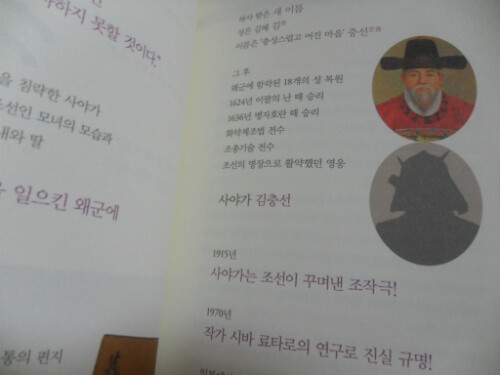 못할 것이다."
을 침략한 사야가
조선인 모녀의 모습과
내와 딸
일으킨 왜군에
통의 편지
하사 받은 새 이름
성은 김해 김
이름은 '충성스럽고 어진 마음' 충선
그 후
왜군에 함락된 18개의 성 복원
1624년 이괄의 난 때 승리
1636년 병자호란 때 승리
화약제조법 전수
조총기술 전수
조선의 명장으로 활약했던 영웅
사야가 김충선
1915년
사야가는 조선이 꾸며낸 조작극!
1970년
작가 시바 료타로의 연구로 진실 규명!